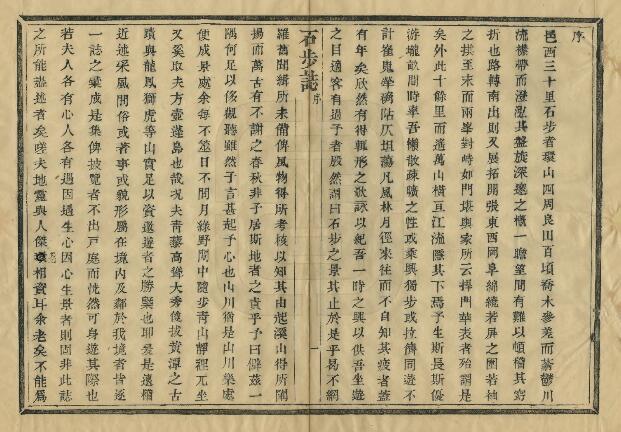 序
邑西三十里石步者環山四周良田百頃喬木參差而蓊鬱川
流襟帶而澄泓其盤旋深邃之概一瞻望間有難以頓稽其窮
折也路轉南出則又展拓開張東西岡阜綿繞若屏之圍若袖
之拱至末而兩峯對峙如門堪輿家所云捍門華表者殆謂是
矣外此十餘里而遥萬山橫亘江流隱其下焉予生斯長斯優
游壠畝間時率吾懶散疎曠之性或乘興獨步或拉儕同遊不
計崔嵬犖确阽仄坦蕩凡風林月徑來往而不自知其疲者蓋
有年矣欣然有得輒形之歌詠以紀吾一時之興以供吾坐遊
之目適客有過予者殷然謂曰石步之景其止於是乎曷不網
石步誌 序 一
羅舊聞緝所未備俾風物得所考核以知其由起溪山得所闡
揚而萬古有不謝之春秋非子居斯地者之責乎予曰僻茲一
隅何足以侈觀聽雖然子言甚起予心也山川猶是山川樂處
便成景處余每不筮日不間月綠野閒中隨步靑山靜裡兀坐
又奚取夫方壺蓬島也哉况夫靑藜高鋒大秀俊拔黄潭之古
蹟與龍鳳獅虎等山實足以資遨遊者之勝槩也耶爰是遠稽
近述采風問俗或著事或貌形屬在境內及鄰於我境者皆逐
一誌之彙成是集俾披覽者不出戸庭而恍然可身遊其際也
若夫人各有心人各有遇因遇生心因心生景者則固非此誌
之所能盡述者矣嗟夫地靈與人傑環相資耳余老矣不能爲